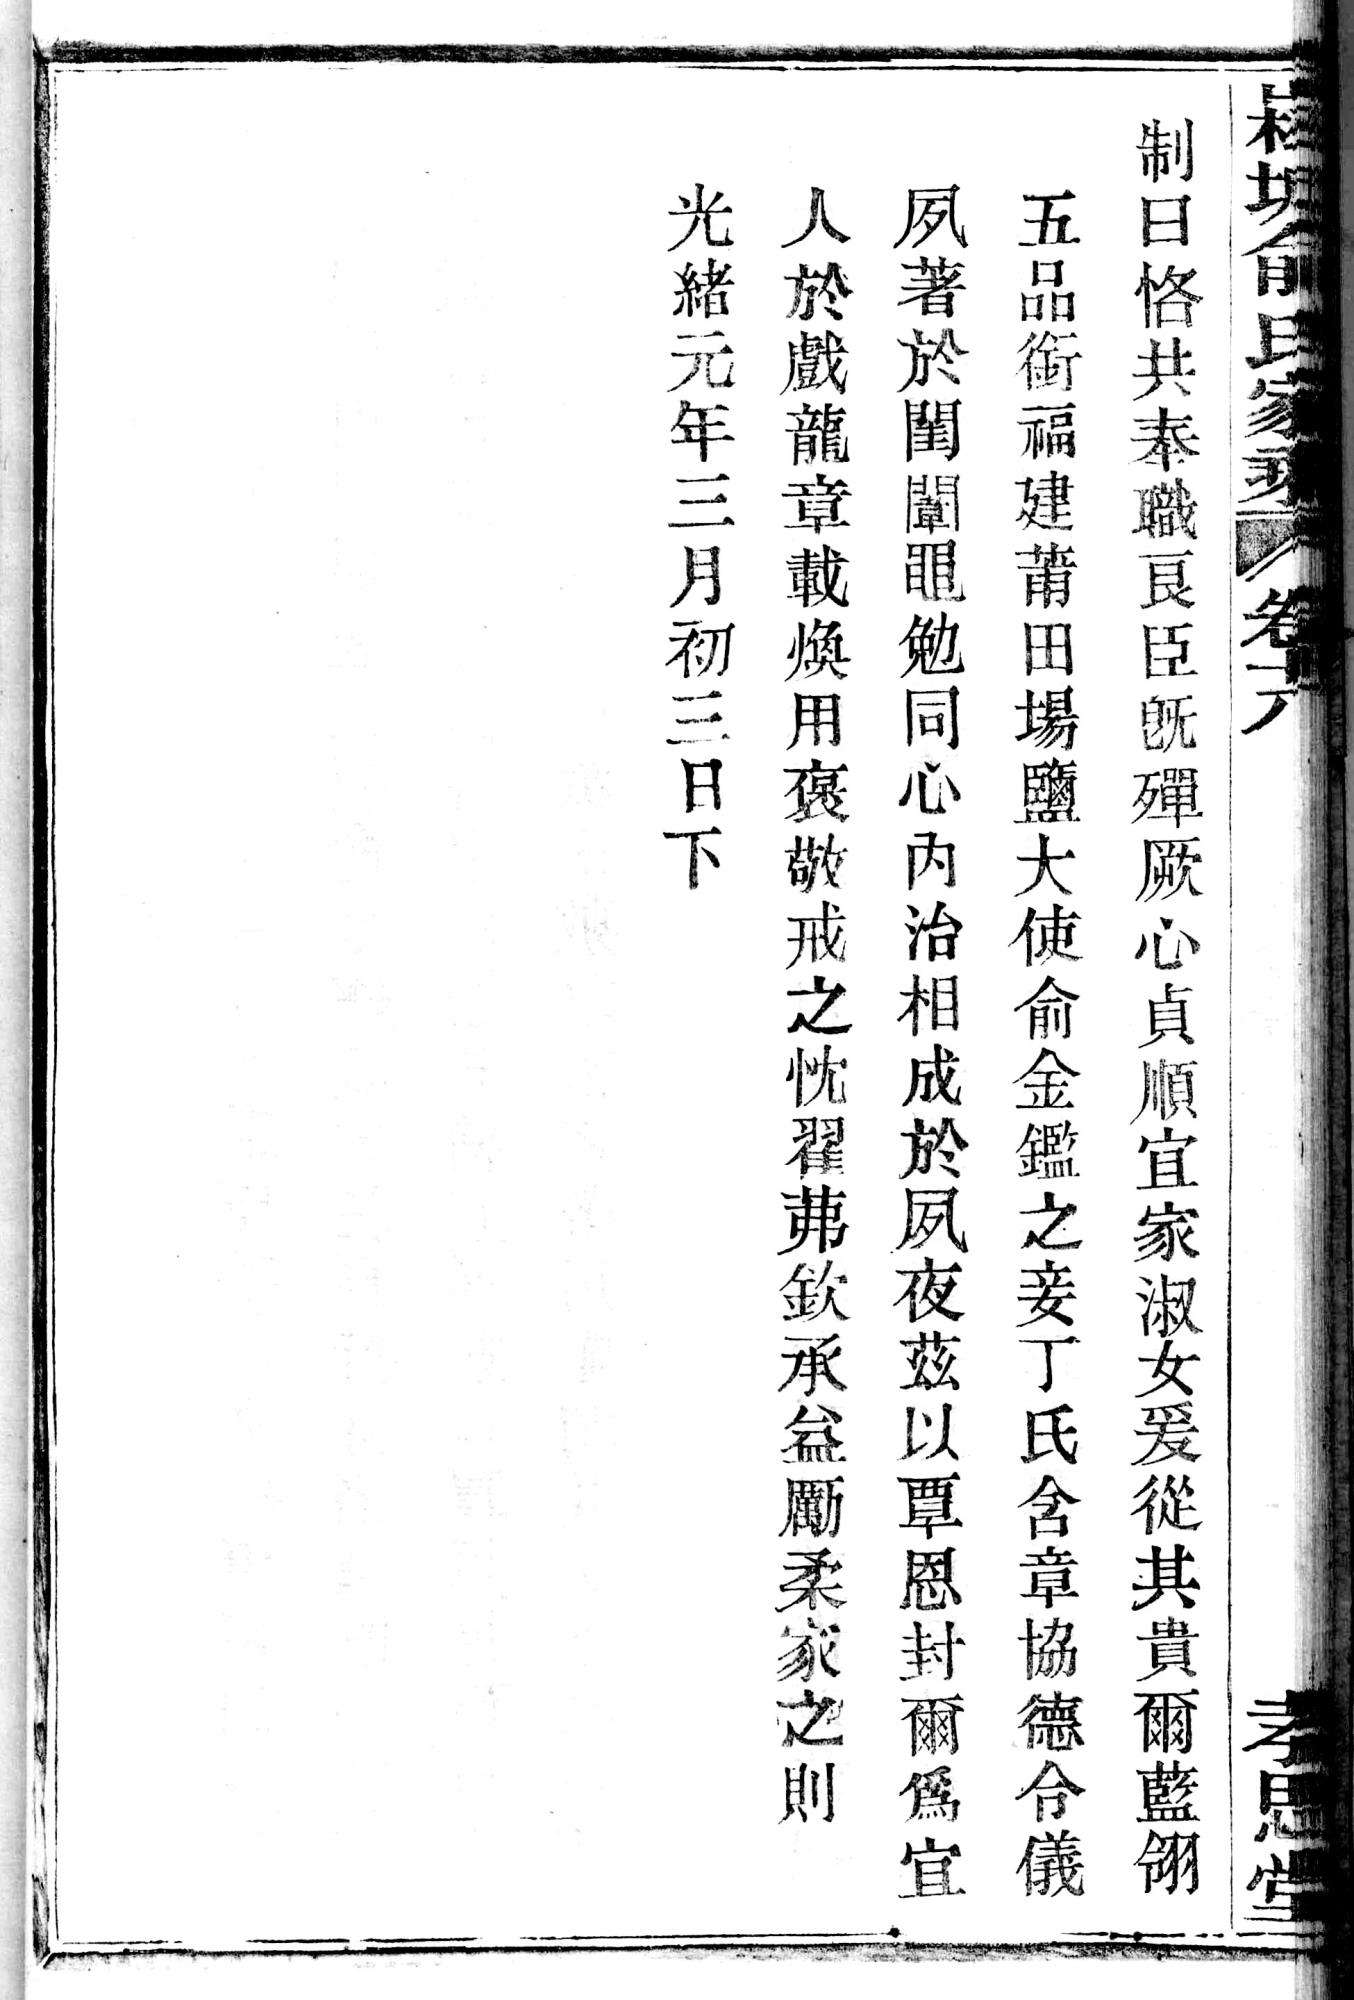 崧塘俞氏家乘 卷六 孝思堂
制曰恪共奉職良臣旣殫厥心貞順宜家淑女爰從其貴爾藍翎
五品銜福建莆田場鹽大使俞金鑑之妾丁氏含章協德令儀
夙著於閨闈黽勉同心內治相成於夙夜茲以覃恩封爾爲宜
人於戲龍章載煥用褒敬戒之忱翟茀欽承益勵柔家之則
光緒元年三月初三日下